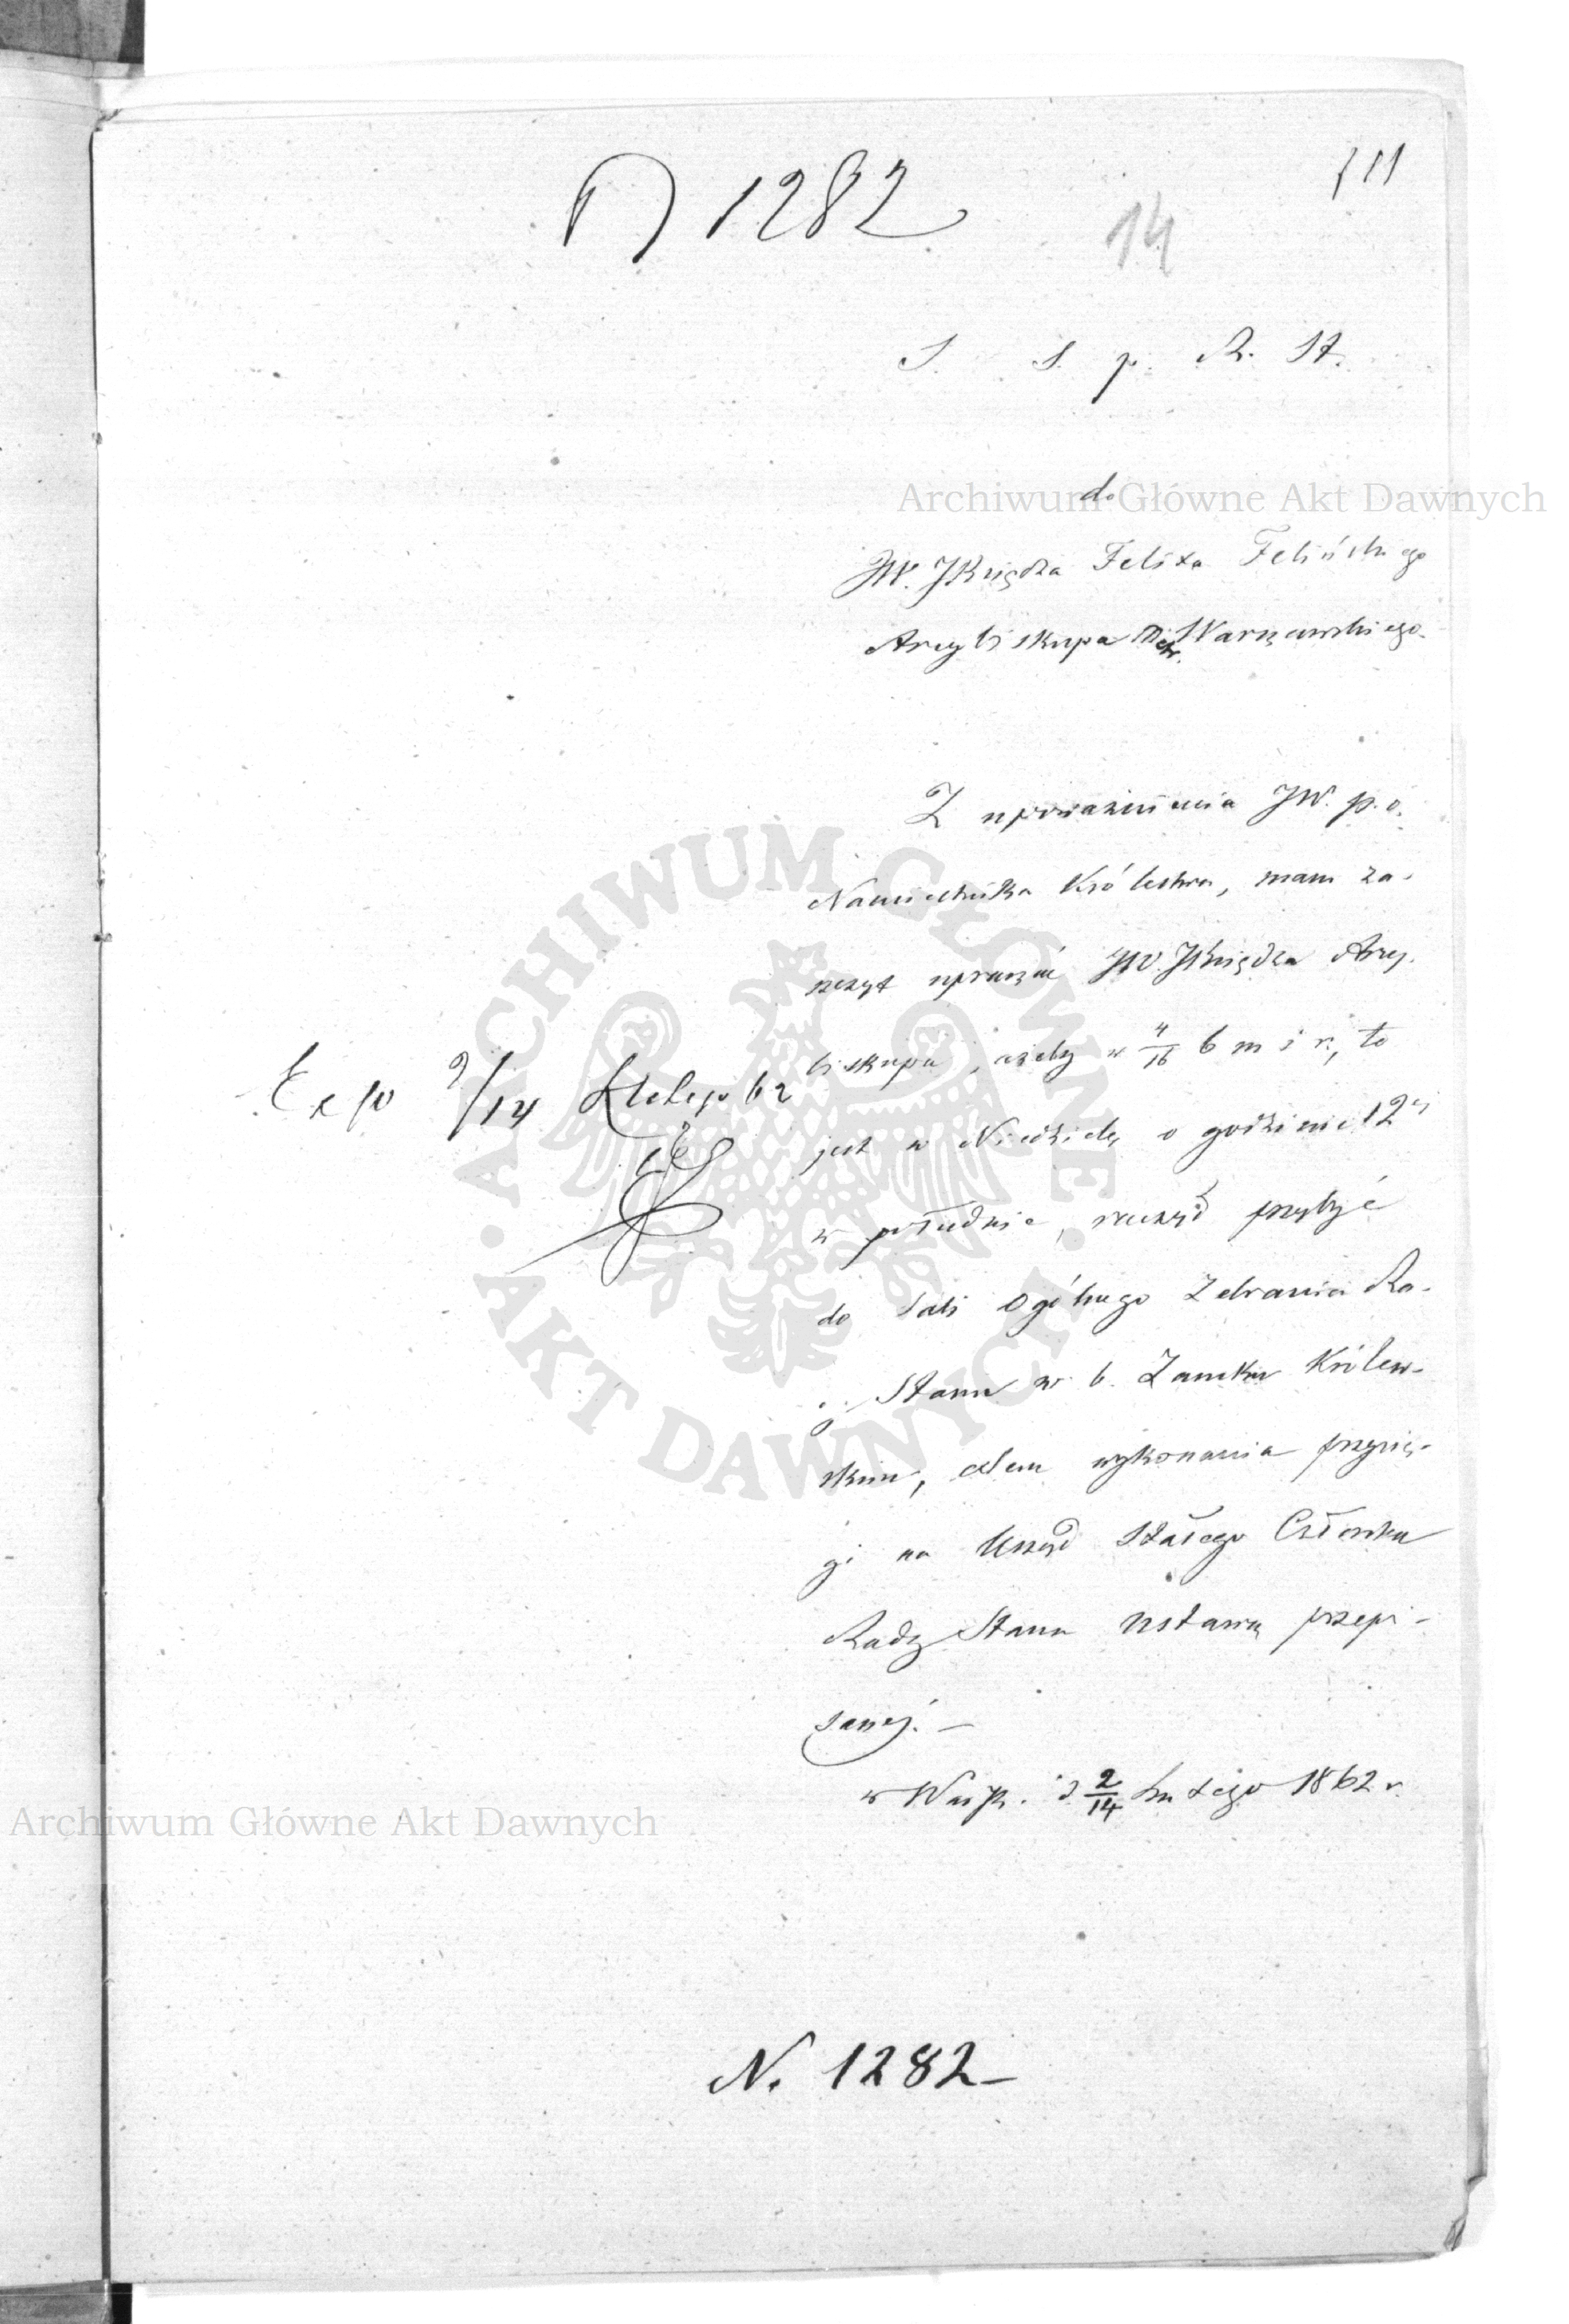 1282
14
S. S. p. R. St.
do
JW. JKsiędza Felixa Felińskiego
Arcybiskupa Metr. Warszawskiego.
Z upoważnienia JW. p. o.
Namiestnika Królestwa, mam za-
szczyt upraszać JW. JKsiędza Arcy-
biskupa, ażeby w 4/16 b m i r., to
Exp 2/14 Lutego 62
jest w Niedzielę o godzinie 12ej
w południe, raczył przybyć
do Sali Ogólnego Zebrania Ra-
dy Stanu w b. Zamku Królew-
skim, celem wykonania przysię-
gi na Urząd Stałego Członka
Rady Stanu Ustawą przepi-
sanej. —
w Warsz. d 2/14 Lutego 1862 r.
N. 1282 —
Archiwum Główne Akt Dawnych
Archiwum Główne Akt Dawnych
ARCHIWUM GŁÓWNE AKT DAWNYCH